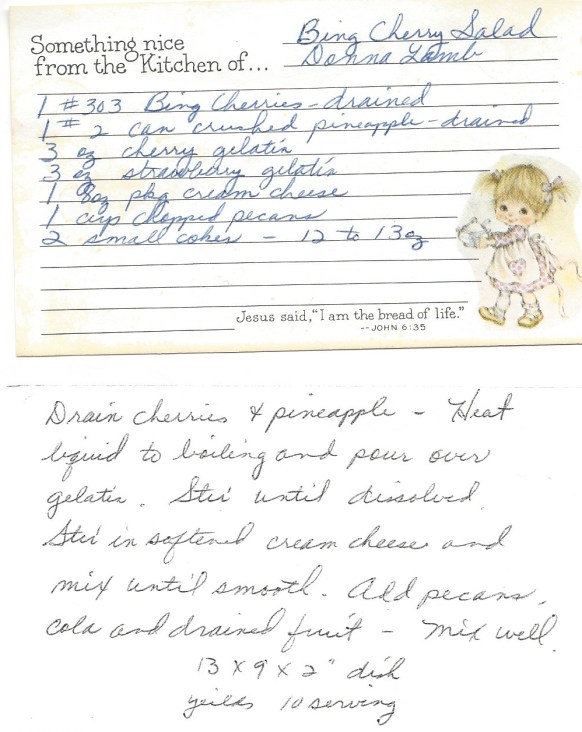 Something nice
from the Kitchen of...
Bing Cherry Salad
Donna Lamb
1 #303 Bing Cherries - drained
1 # 2 can crushed pineapple - drained
3 oz cherry gelatin
3 oz strawberry gelatin
1 8oz pkg cream cheese
1 cup chopped pecans
2 small cokes - 12 to 13 oz
Jesus said, "I am the bread of life."
--JOHN 6:35
Drain cherries & pineapple - Heat
liquid to boiling and pour over
gelatin. Stir until dissolved.
Stir in softened cream cheese and
mix until smooth. Add pecans,
cola and drained fruit - Mix well.
13 x 9 x 2" dish
yeilds 10 serving